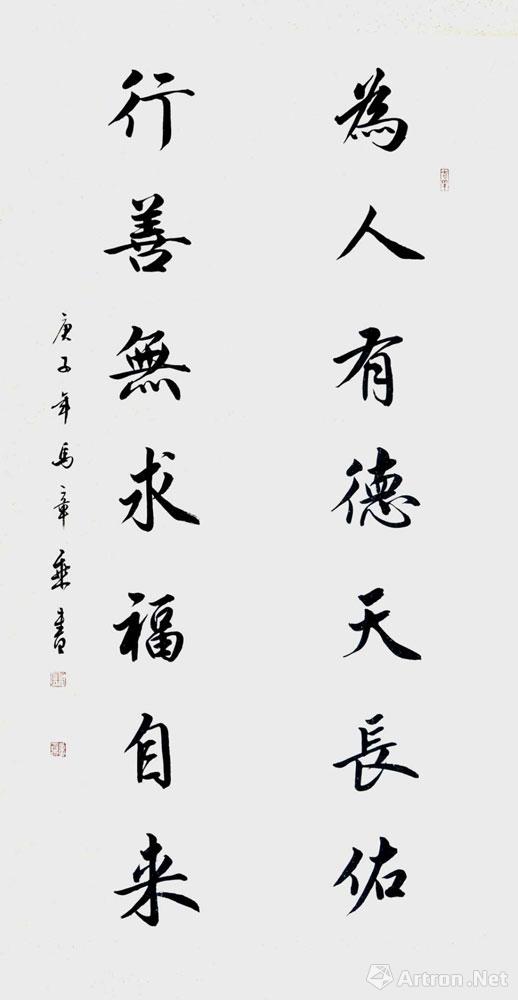 為人有德天長佑
行善無求福自来
庚子年馬章乘書
Artron.Net